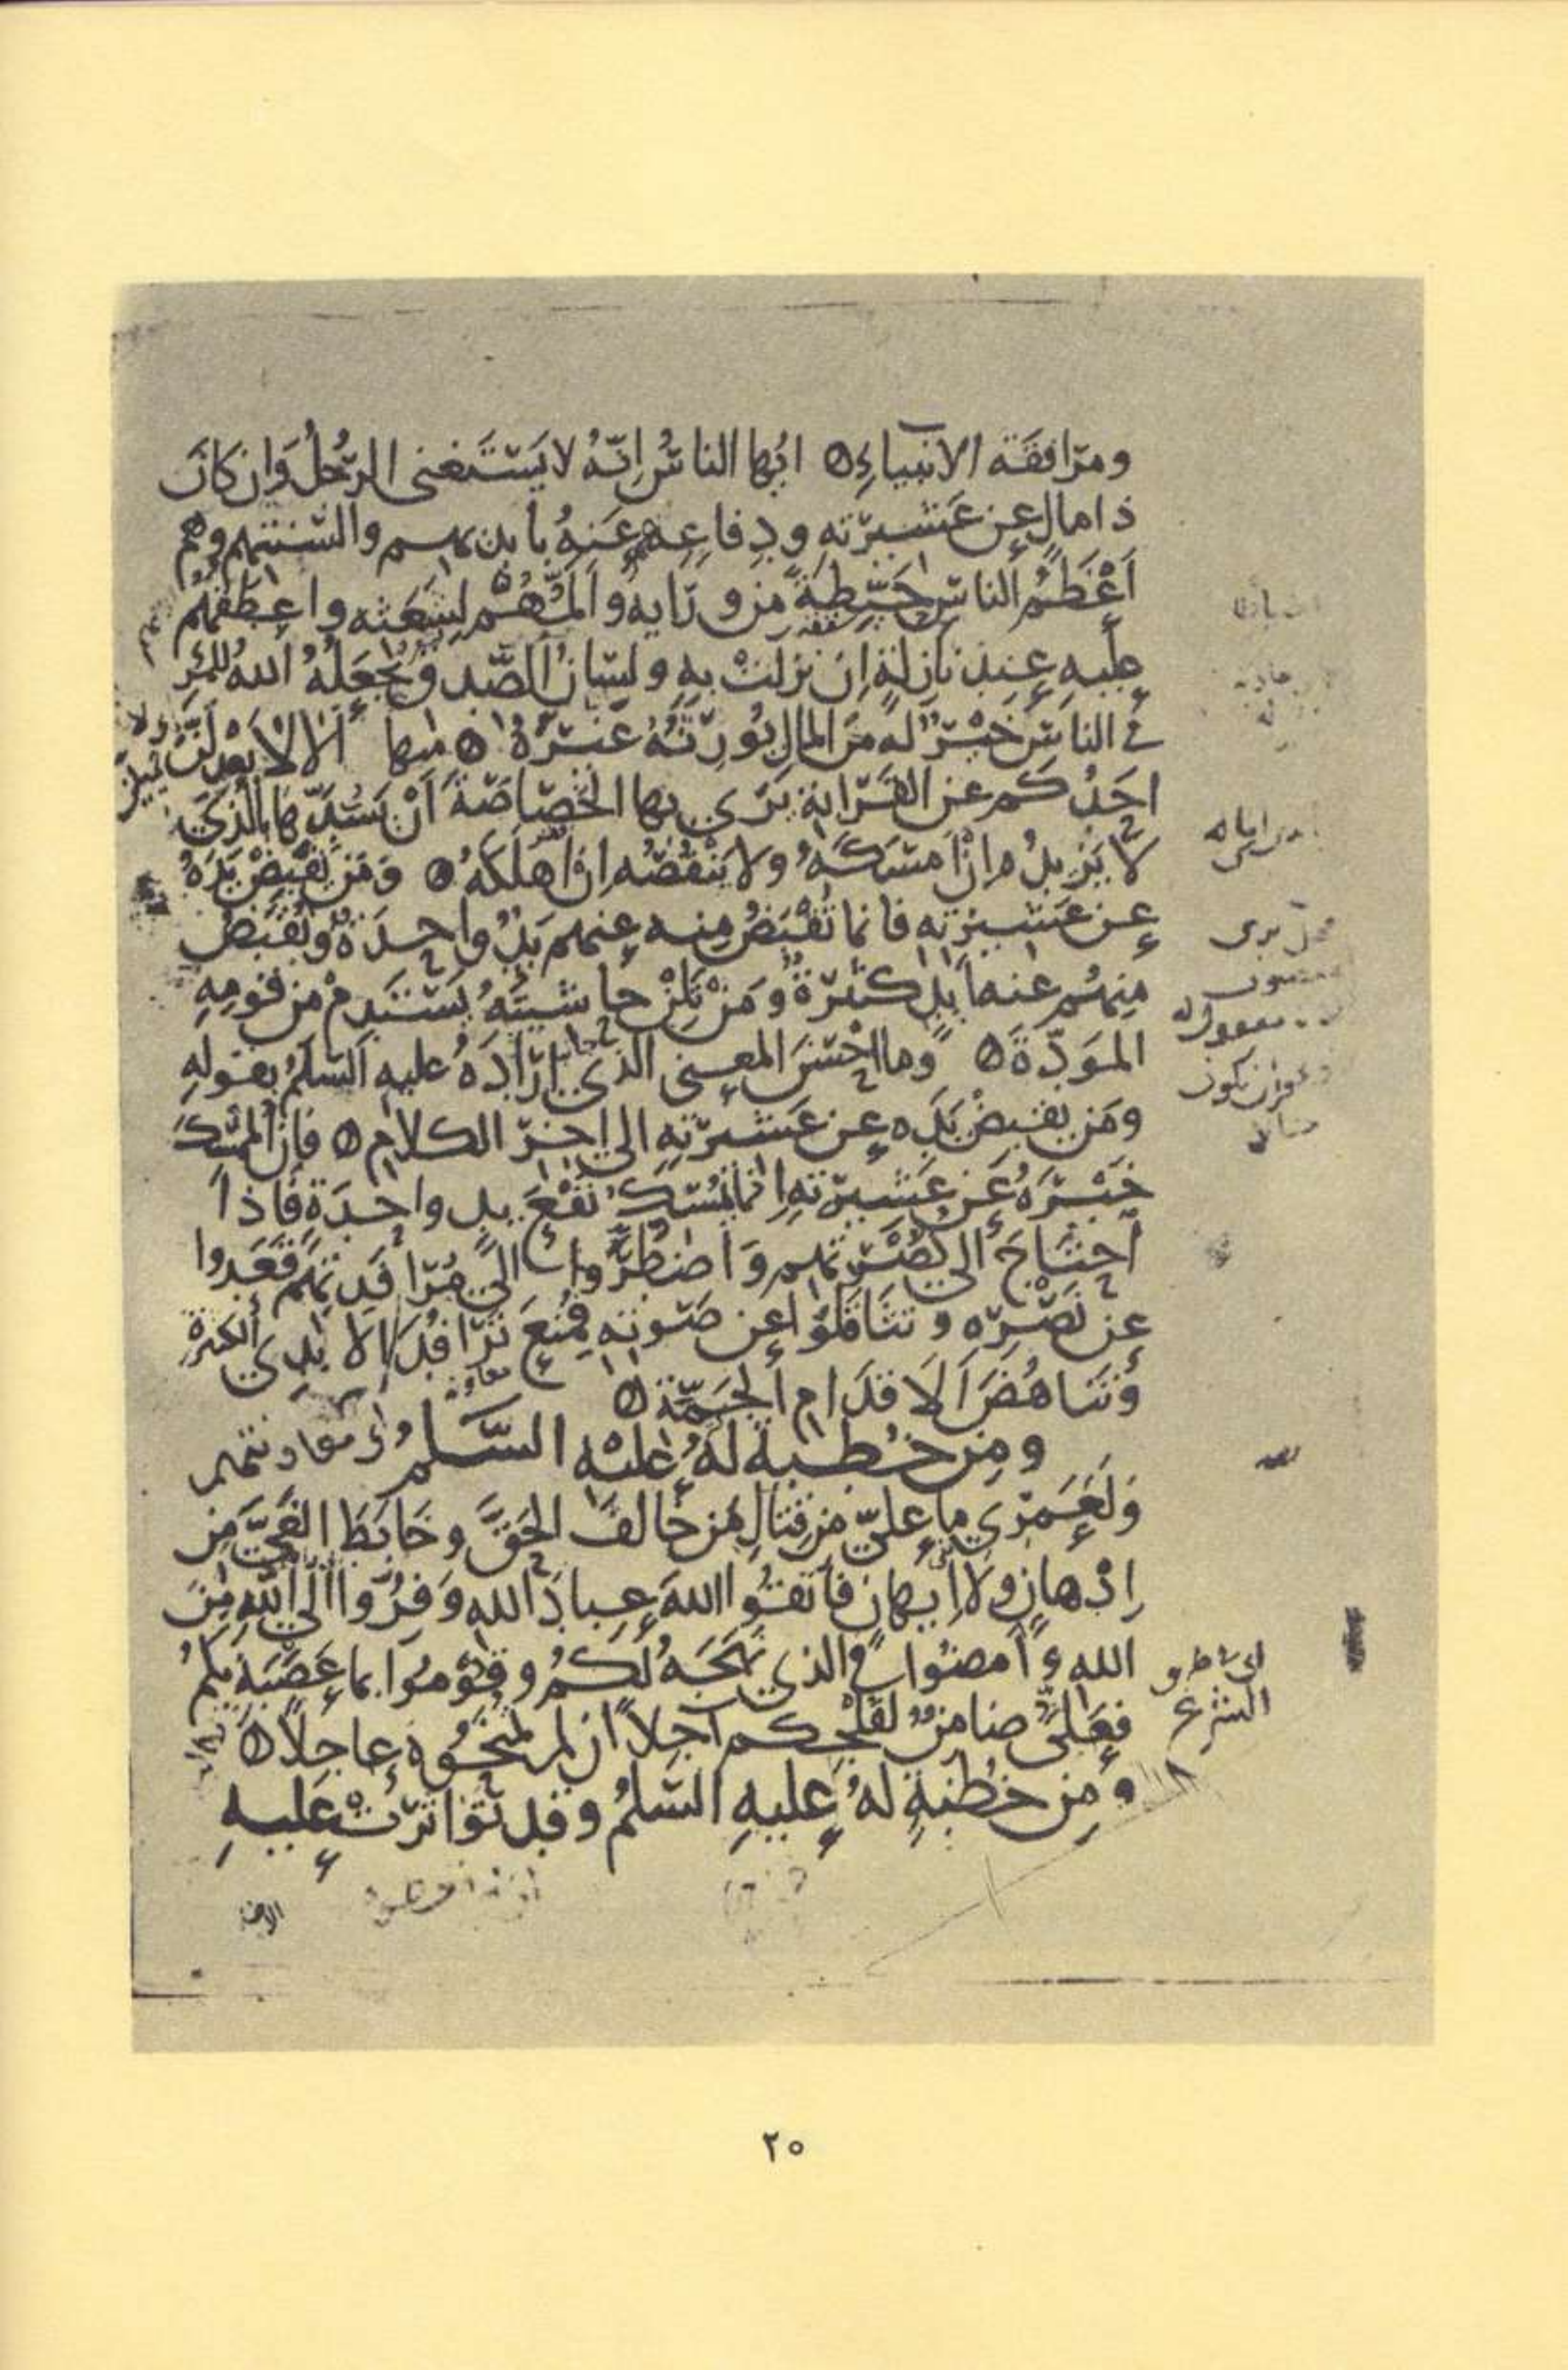 ومرافقة الانبياء ۞ ايها الناس إنّه لا يستغنى الرّجل وإن كان
ذا مال عن عشيرته ودفاعهم عنه بأيديهم والسنتهم وهم
أعظم الناس حيّطةً من ورايه وألمّهم لشعثه واعطفهم
عليه عند نازلة إن نزلت به ولسان الصّدق يجعله الله للمرء
في الناس خير له من المال يورّثه غيره ۞ منها ألا لا يعدلنّ
احدكم عن القرابة يرى بها الخصاصة أن يسدّها بالذي
لا يزيده إن امسكه ولا ينقصه إن اهلكه ۞ ومن يقبض يده
عن عشيرته فانما تقبض منه عنهم يد واحدة وتقبض
منهم عنه أيد كثيرة ومن تلن حاشيته يستدم من قومه
المودّة ۞ وما احسن المعنى الذي اراده عليه السلم بقوله
ومن يقبض يده عن عشيرته الى اخر الكلام ۞ فإن الممسك
خيره عن عشيرته انما يمسك نفع يد واحدة فاذا
احتاج الى نصرتهم واضطرّ الى مرافدتهم قعدوا
عن نصره وتثاقلوا عن صوته فمنع ترافد الايدي الكثيرة
وتناهض الاقدام الجمّة ۞
ومن خطبة له عليه السّلم
ولعمري ما عليّ من قتال من خالف الحقّ وخابط الغيّ من
إدهان ولا إيهان فاتقوا الله عباد الله وفرّوا الى الله من
الله وامضوا في الذي نهجه لكم وقوموا بما عصبه بكم
فعليّ ضامن لفلجكم آجلاً ان لم تمنحوه عاجلاً ۞
ومن خطبة له عليه السّلم وقد تواترت عليه
الشرع
٢٥